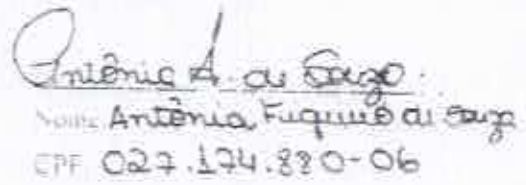 Antônia A. de Souza
Nome: Antônia Fuguiuo di Souza
CPF: 027.174.880-06